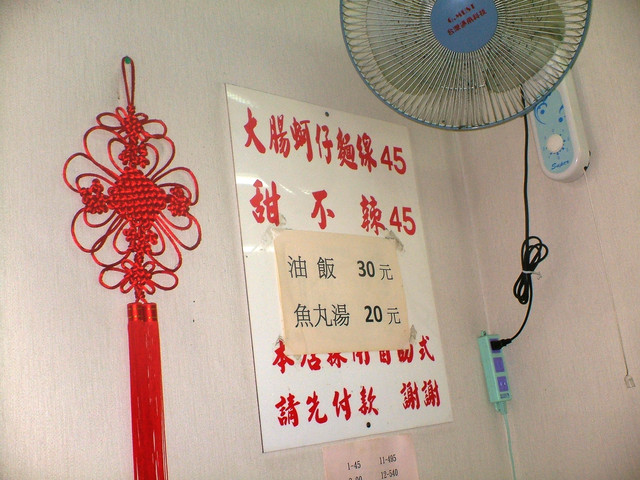 大腸蚵仔麵線45
甜不辣45
油飯 30元
魚丸湯 20元
本店採用自助式
請先付款 謝謝
1-45 11-495
12-540
Super